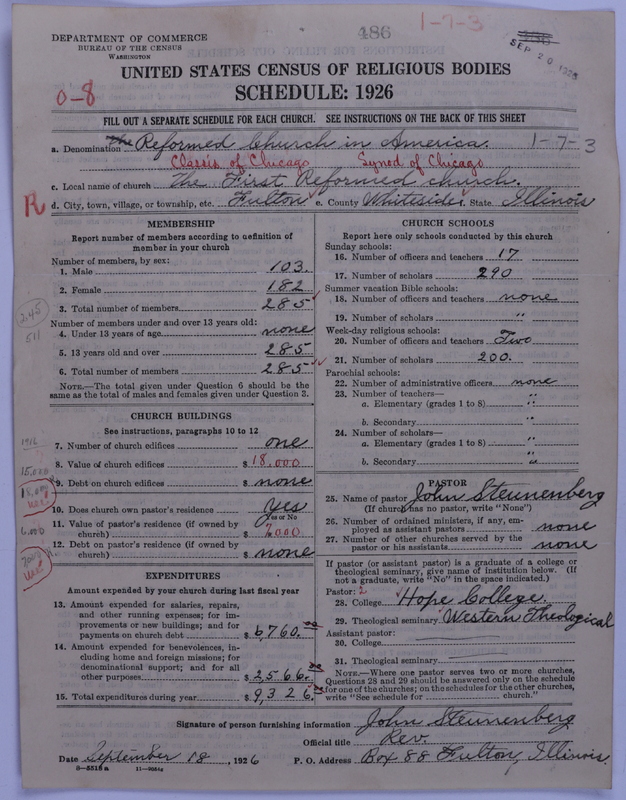 486
1-7-3
SEP 20 1926
DEPARTMENT OF COMMERCE
BUREAU OF THE CENSUS
WASHINGTON
UNITED STATES CENSUS OF RELIGIOUS BODIES
SCHEDULE: 1926
0-8
FILL OUT A SEPARATE SCHEDULE FOR EACH CHURCH. SEE INSTRUCTIONS ON THE BACK OF THIS SHEET
a. Denomination The Reformed Church in America. 1-7-3
Classis of Chicago Synod of Chicago
c. Local name of church The First Reformed church.
R
d. City, town, village, or township, etc. Fulton e. County Whiteside. State Illinois
MEMBERSHIP
Report number of members according to definition of
member in your church
Number of members, by sex:
1. Male 103.
2. Female 182
3. Total number of members 285
245
511
Number of members under and over 13 years old:
4. Under 13 years of age none
5. 13 years old and over 285
6. Total number of members 285
NOTE.—The total given under Question 6 should be the
same as the total of males and females given under Question 3.
CHURCH BUILDINGS
See instructions, paragraphs 10 to 12
1916
7. Number of church edifices one
15,000
8. Value of church edifices $ 18,000
18,000
9. Debt on church edifices $ none
10. Does church own pastor's residence yes
Yes or No
6,000
11. Value of pastor's residence (if owned by
church) $ 7,000
12. Debt on pastor's residence (if owned by
church) $ none
EXPENDITURES
Amount expended by your church during last fiscal year
13. Amount expended for salaries, repairs,
and other running expenses; for im-
provements or new buildings; and for
payments on church debt $ 6,760.00
14. Amount expended for benevolences, in-
cluding home and foreign missions; for
denominational support; and for all
other purposes $ 2,566.00
15. Total expenditures during year $ 9,326.00
CHURCH SCHOOLS
Report here only schools conducted by this church
Sunday schools:
16. Number of officers and teachers 17
17. Number of scholars 290
Summer vacation Bible schools:
18. Number of officers and teachers none
19. Number of scholars "
Week-day religious schools:
20. Number of officers and teachers Two
21. Number of scholars 200.
Parochial schools:
22. Number of administrative officers none
23. Number of teachers—
a. Elementary (grades 1 to 8) "
b. Secondary "
24. Number of scholars—
a. Elementary (grades 1 to 8) "
b. Secondary "
PASTOR
25. Name of pastor John Steunenberg
(If church has no pastor, write "None")
26. Number of ordained ministers, if any, em-
ployed as assistant pastors none
27. Number of other churches served by the
pastor or his assistants none
If pastor (or assistant pastor) is a graduate of a college or
theological seminary, give name of institution below. (If
not a graduate, write "No" in the space indicated.)
Pastor: 2
28. College Hope College.
29. Theological seminary Western Theological
Assistant pastor:
30. College
31. Theological seminary
NOTE.—Where one pastor serves two or more churches,
Questions 28 and 29 should be answered only on the schedule
for one of the churches; on the schedules for the other churches,
write "See schedule for church."
Signature of person furnishing information John Steunenberg
Official title Rev.
Date September 18, 1926 P. O. Address Box 88 Fulton, Illinois.
8-5518a 11-9084